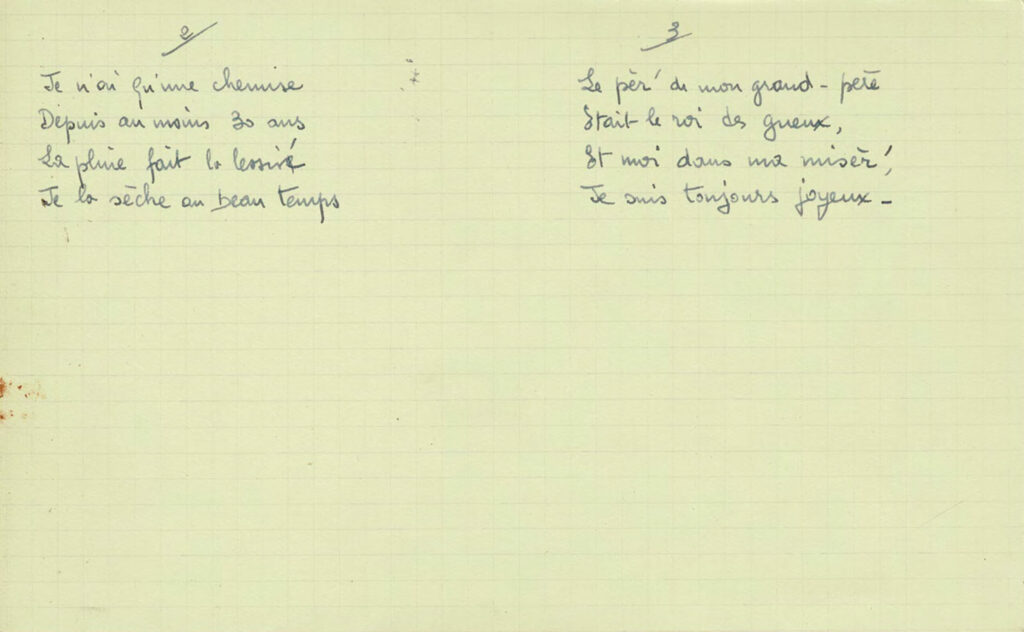 2
Je n'ai qu'une chemise
Depuis au moins 30 ans
La pluie fait la lessiv'
Je la sèche au beau temps
3
Le pèr' de mon grand-père
Etait le roi des gueux,
Et moi dans ma misèr',
Je suis toujours joyeux -